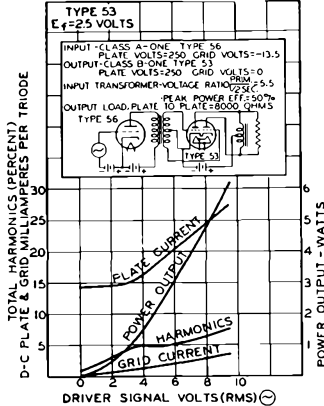 TYPE 53
Ef=2.5 VOLTS
INPUT-CLASS A-ONE TYPE 56
PLATE VOLTS=250 GRID VOLTS=-13.5
OUTPUT-CLASS B-ONE TYPE 53
PLATE VOLTS=250 GRID VOLTS=0
INPUT TRANSFORMER-VOLTAGE RATIO PRIM./½SEC.=5.5
PEAK POWER EFF.=50%
OUTPUT LOAD, PLATE TO PLATE=8000 OHMS
TYPE 56
TYPE 53
TOTAL HARMONICS (PERCENT)
D-C PLATE & GRID MILLIAMPERES PER TRIODE
30
25
20
15
10
5
PLATE CURRENT
POWER OUTPUT
HARMONICS
GRID CURRENT
6
5
4
3
2
1
POWER OUTPUT-WATTS
0 2 4 6 8 10
DRIVER SIGNAL VOLTS (RMS)